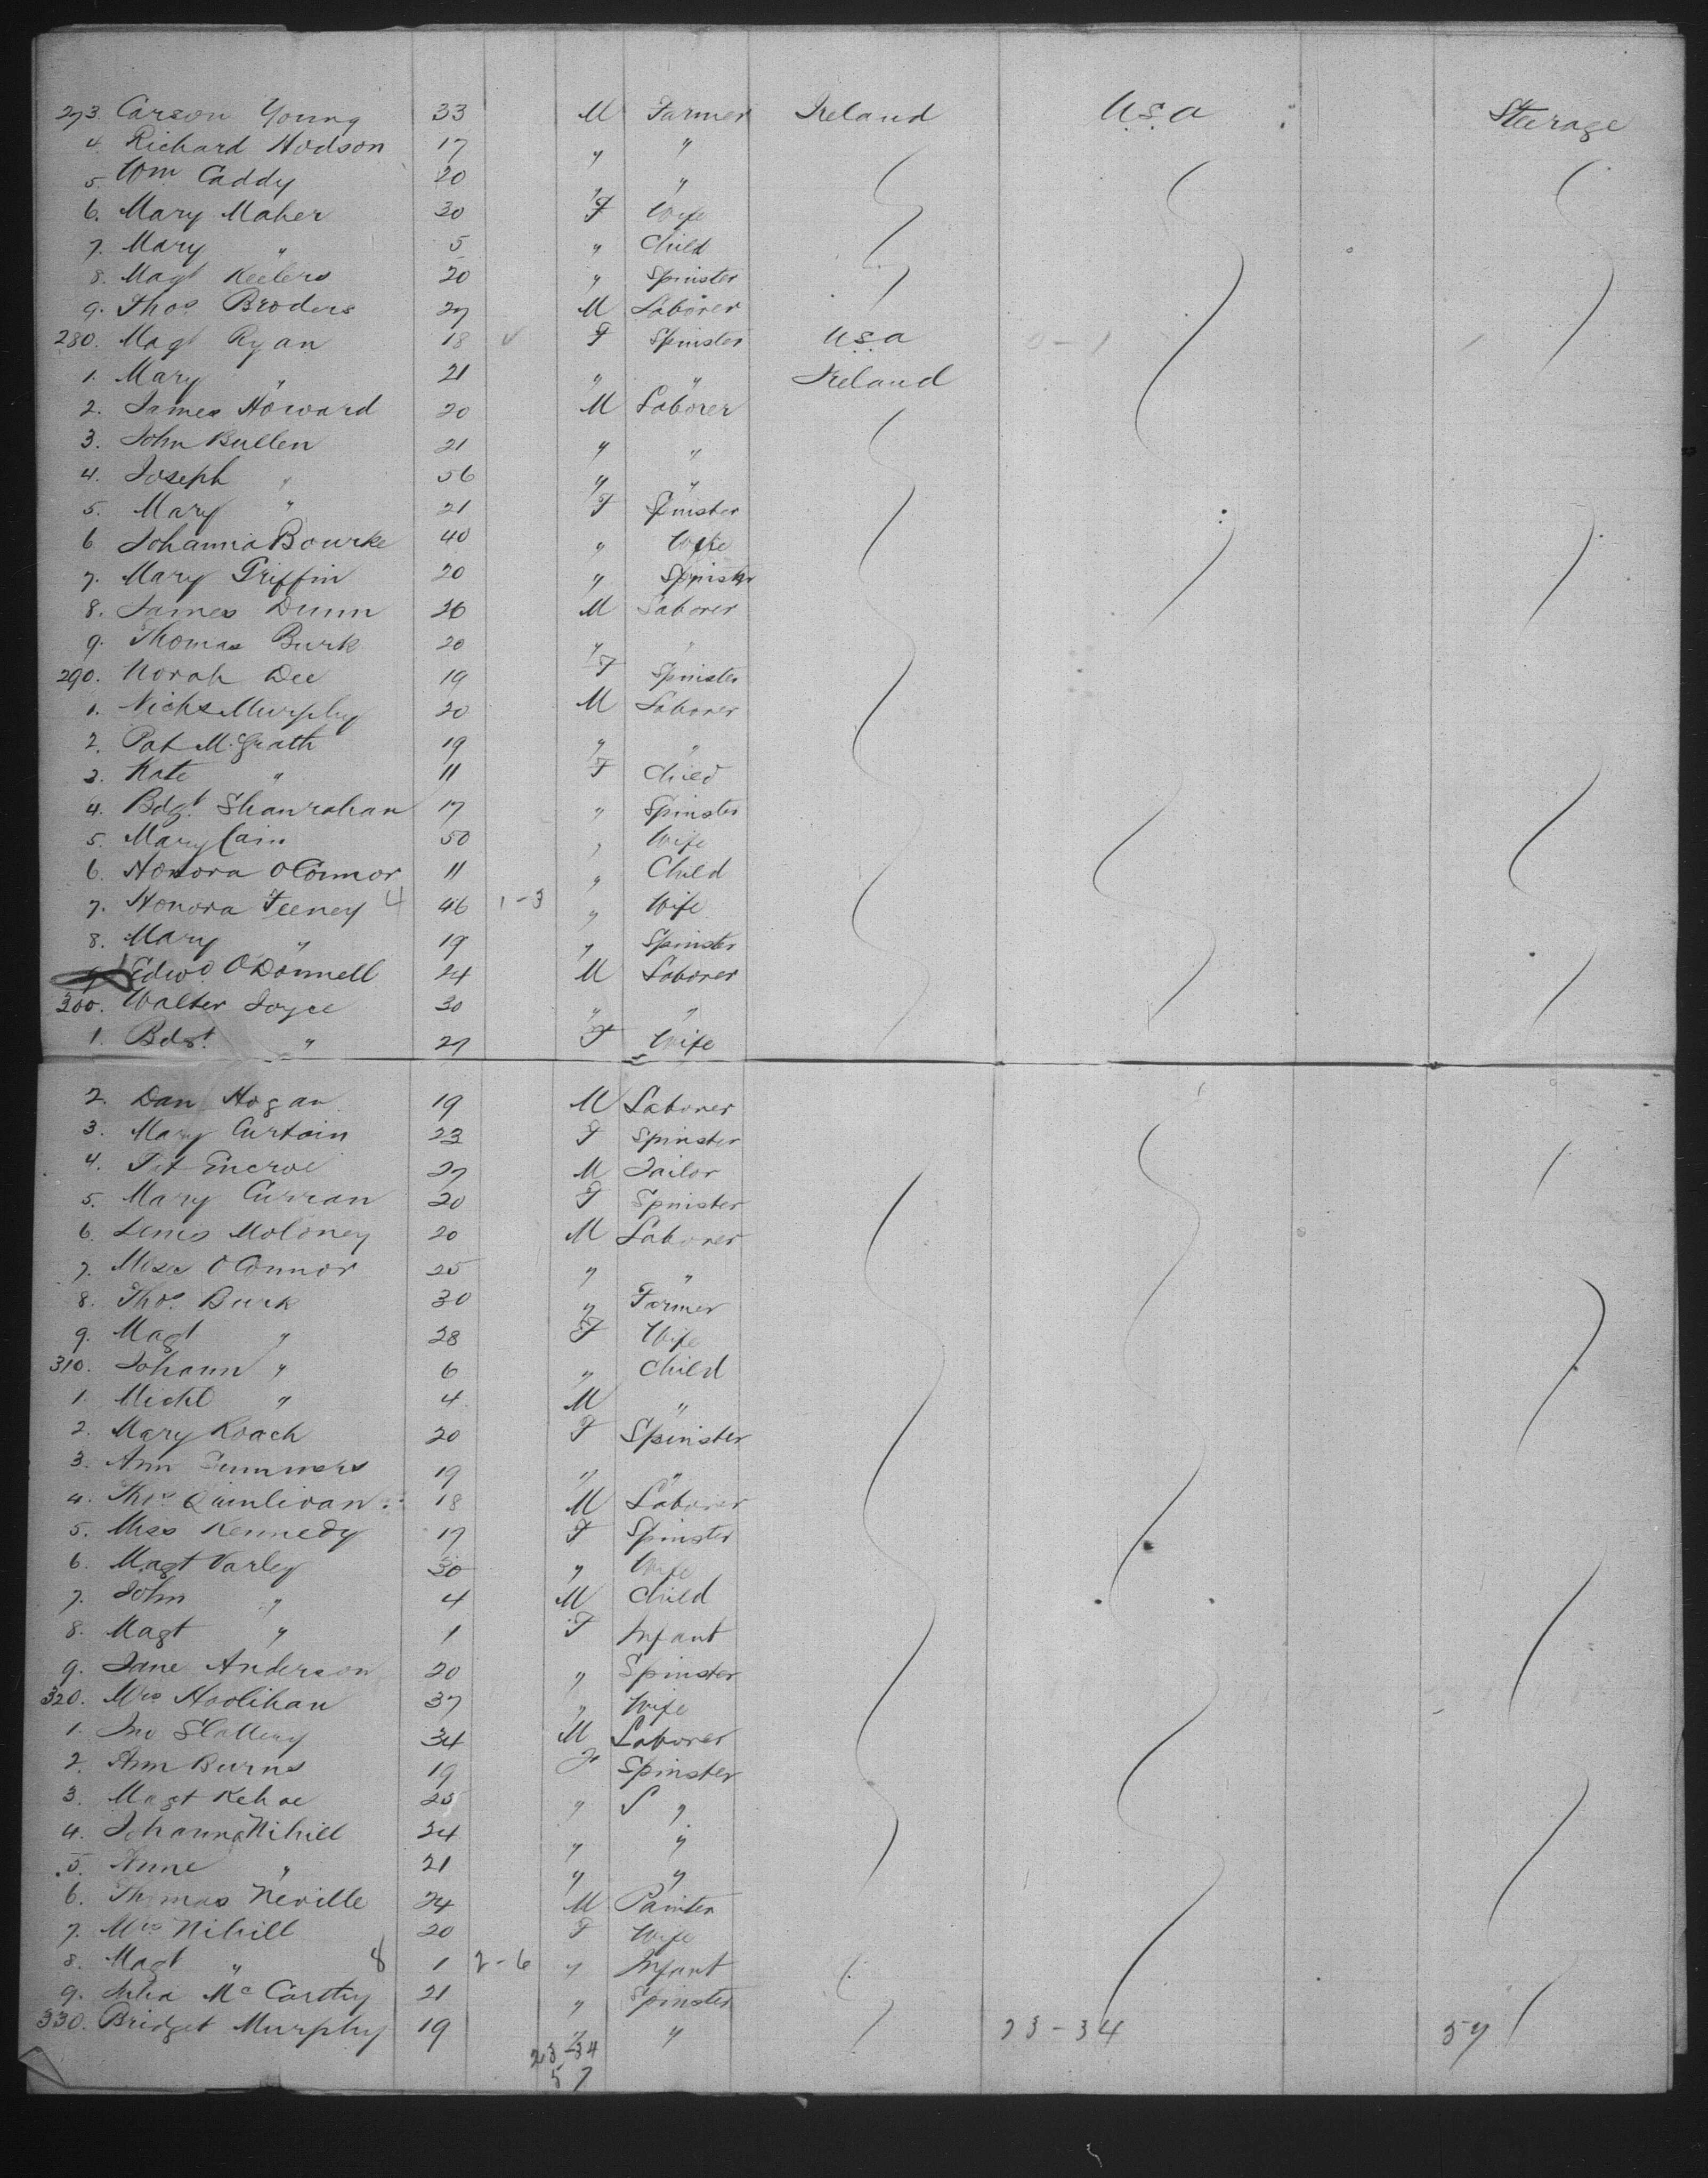 273. Carson Young 33 M Farmer Ireland U.S.a Steerage
4. Richard Hodson 17 " "
5. Wm Caddy 20 " "
6. Mary Maher 30 F Wife
7. Mary " 5 " Child
8. Magt Keelers 20 " Spinster
9. Thos Broders 27 M Laborer
280. Magt Ryan 18 F Spinster U.S.a 0-1
1. Mary " 21 " " Ireland
2. James Howard 20 M Laborer
3. John Bullen 21 " "
4. Joseph " 56 " "
5. Mary " 21 F Spinster
6 Johanna Bourke 40 " Wife
7. Mary Griffin 20 " Spinster
8. James Dunn 26 M Laborer
9. Thomas Burk 20 " "
290. Norah Dee 19 F Spinster
1. Nichs Murphy 20 M Laborer
2. Pat McGrath 19 " "
3. Kate " 11 F Child
4. Bdgt Shanrahan 17 " Spinster
5. Mary Cain 50 " Wife
6. Honora OConnor 11 " Child
7. Honora Feeney 4 46 1-3 " Wife
8. Mary " 19 " Spinster
9 Edwd O'Donnell 24 M Laborer
300. Walter Joyce 30 " "
1. Bdgt " 27 F Wife
2. Dan Hogan 19 M Laborer
3. Mary Curtain 23 F Spinster
4. Pat 27 M Tailor
5. Mary Curran 20 F Spinster
6. Denis Moloney 20 M Laborer
7. OConnor 25 " "
8. Thos. Burk 30 " Farmer
9. Magt " 28 F Wife
310. Johann " 6 " Child
1. Michl " 4 M "
2. Mary Roach 20 F Spinster
3. Ann Summers 19 " "
4. Thos Quinlivan 18 M Laborer
5. Miss Kennedy 17 F Spinster
6. Magt Varley 30 " Wife
7. John " 4 M Child
8. Magt " 1 F Infant
9. Jane Anderson 20 " Spinster
320. Mrs Hoolihan 37 " Wife
1. Jno Slattery 34 M Laborer
2. Ann Burns 19 F Spinster
3. Magt Kehoe 25 " S "
4. Johanna Nihill 24 " "
5. Anne " 21 " "
6. Thomas Neville 24 M Painter
7. Mrs Nihill 20 F Wife
8. Magt " 8 1 2-6 " Infant
9. Julia McCarthy 21 " Spinster
330. Bridget Murphy 19 " " 23-34 57
23-34
57